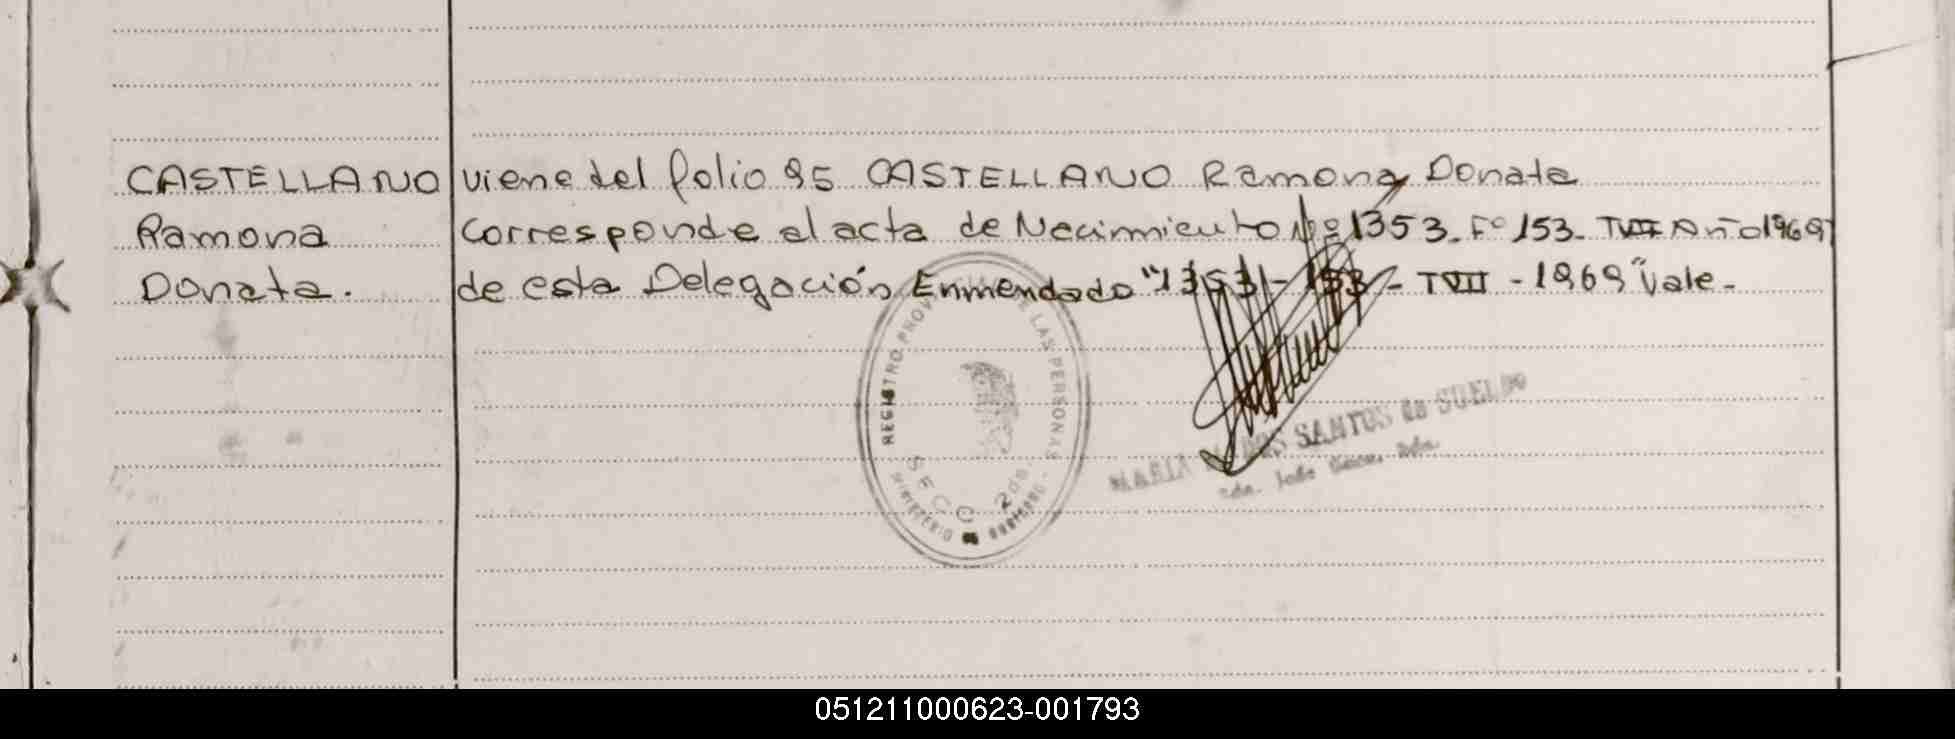 CASTELLANO
Ramona
Donata.
viene del folio 95 CASTELLANO Ramona Donata
Corresponde al acta de Nacimiento Nº 1353. Fº 153- TVII Año 1969
de esta Delegación Enmendado "1353 - 153 - TVII - 1969" Vale-
REGISTRO DE LAS PERSONAS
SECC 2da
MINISTERIO DE GOBIERNO
MARIA SANTOS de SUELDO
051211000623-001793